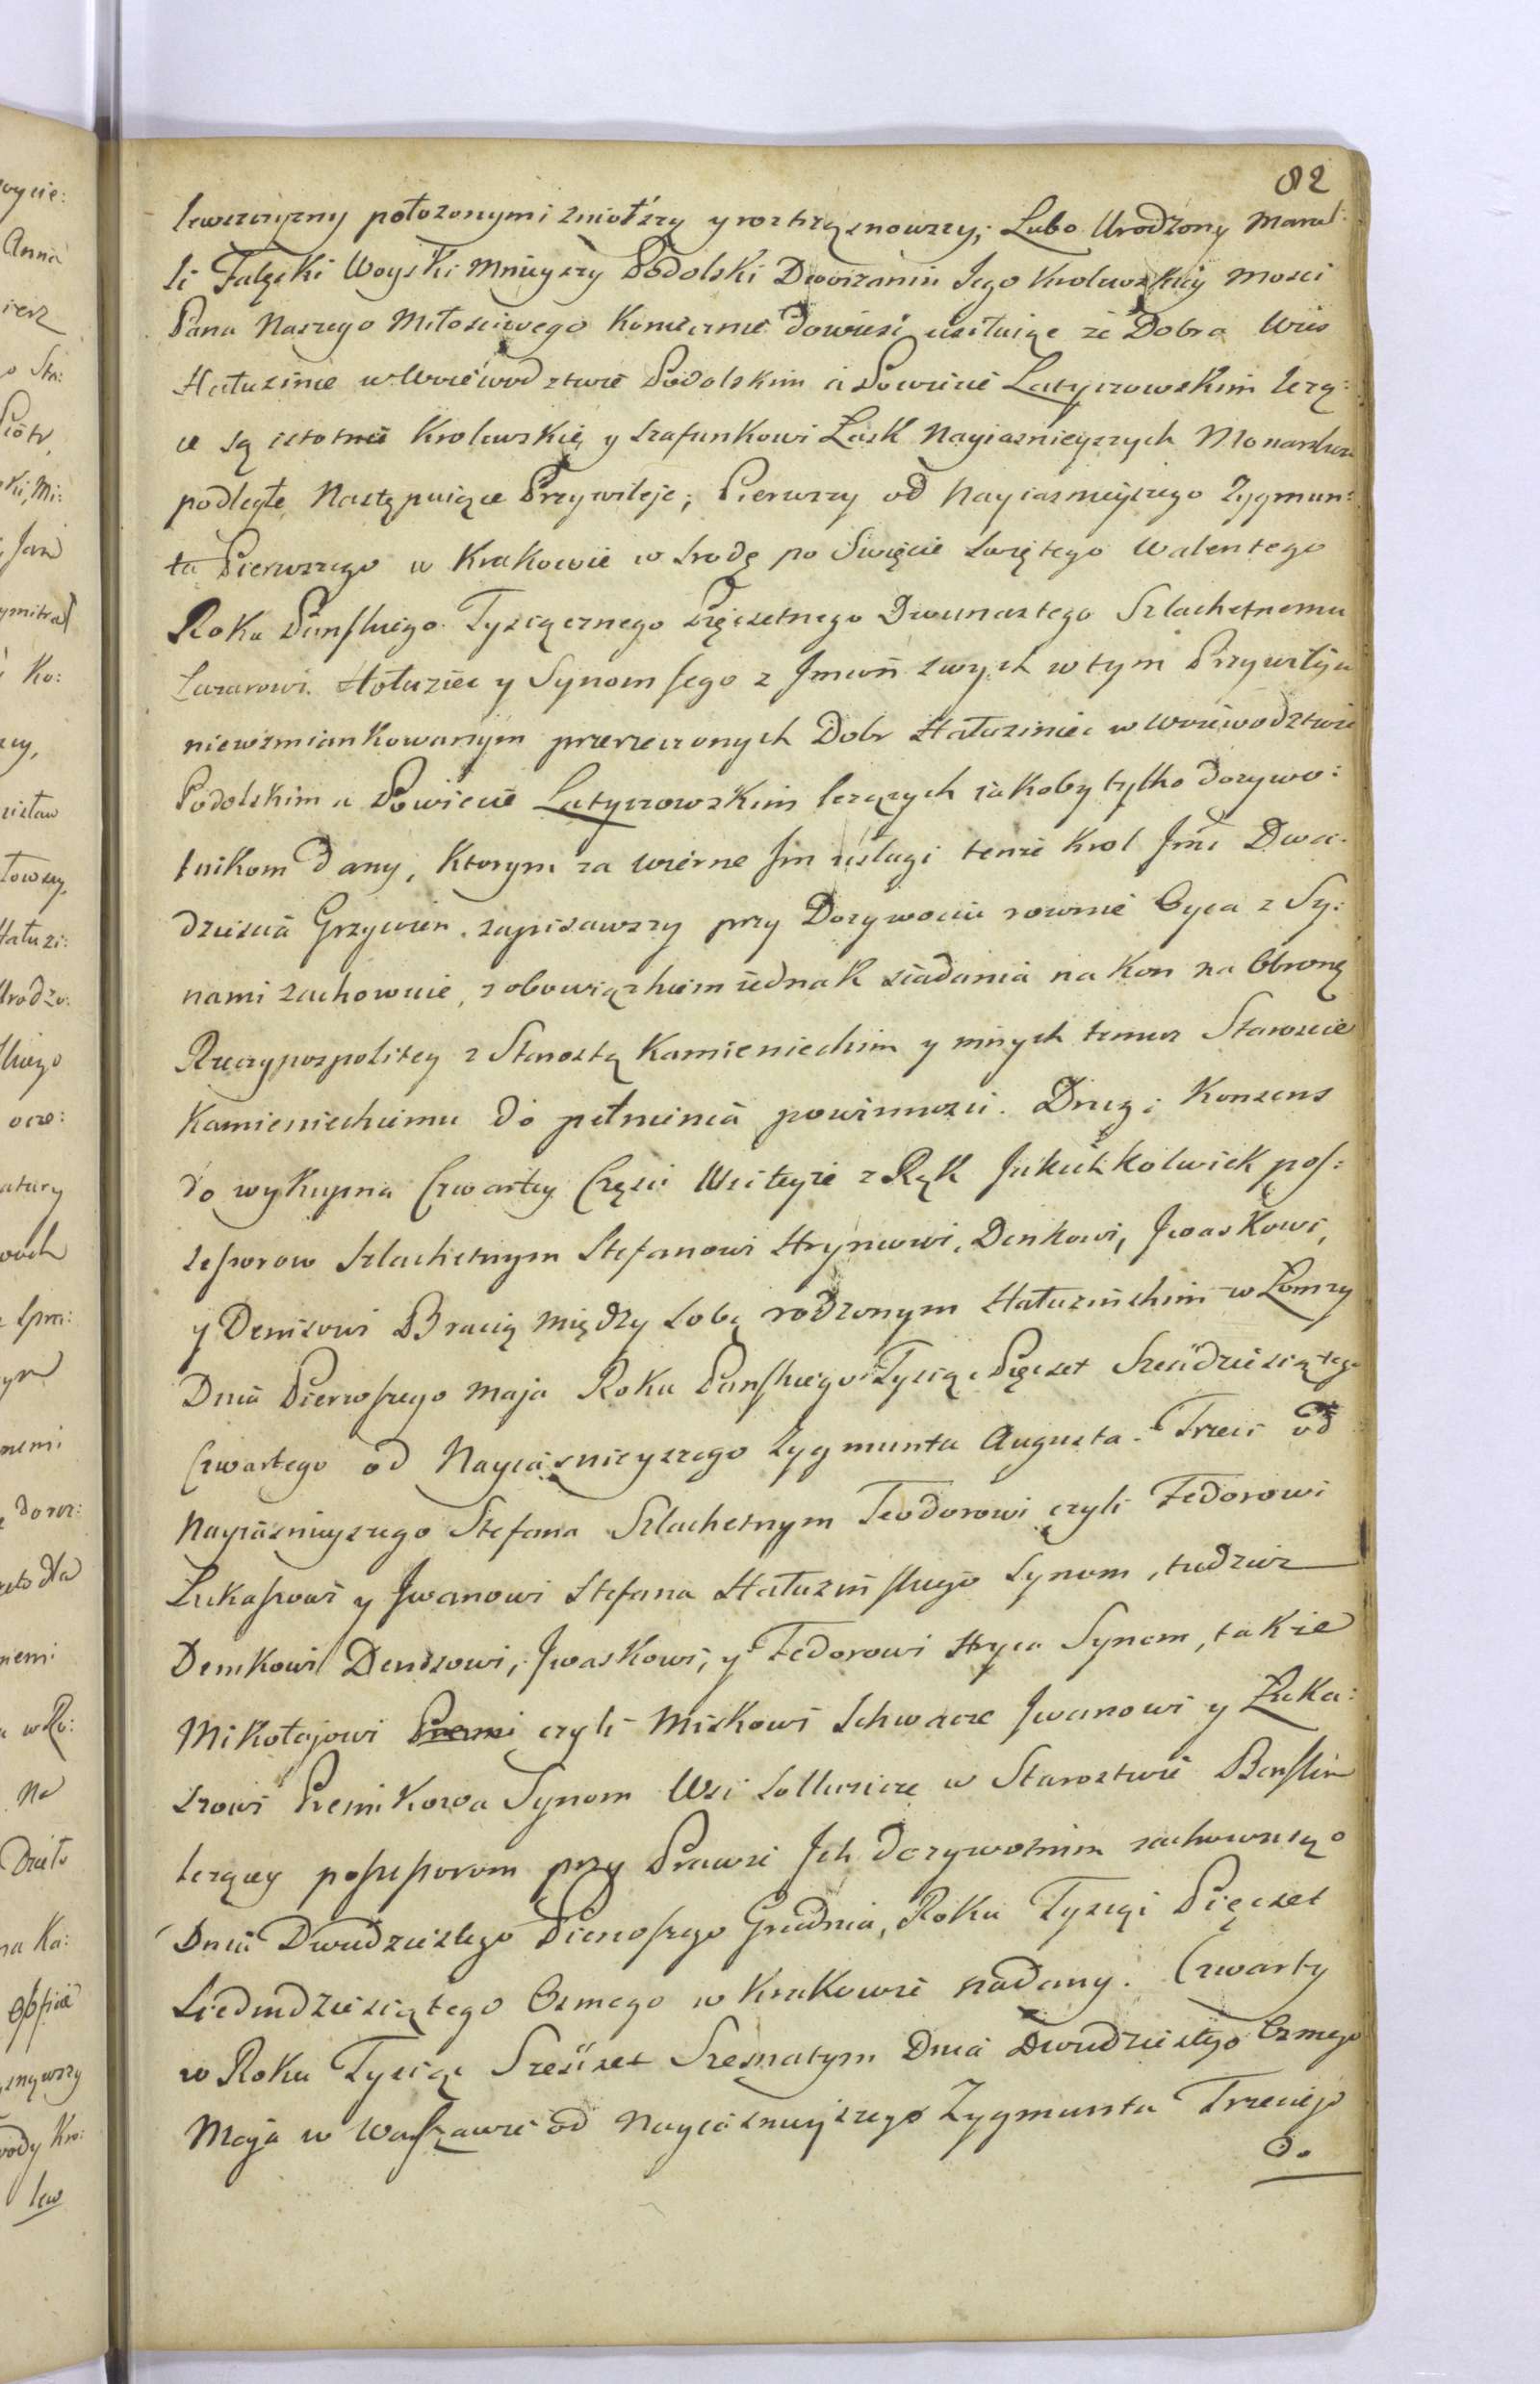 82
lewszczyzny położonymi zniołszy y roztrząsnowszy; Lubo Urodzony Marcel:
li Falęcki Woyski Mnieyszy Podolski Dworzanin Jego Krolewskiey Mosci
Pana Naszego Miłosciwego Koniecznie dowiesć usiłuiąc że Dobra Wies
Hałuzince w Woiewodztwie Podolskim a Powiecie Latyczowskim leżą:
ce są istotnie Krolewskie y szafunkowi Łask Nayiasnieyszych Monarchow
podległe Następuiące Przywileje; Pierwszy od Nayiasnieyszego Zygmun:
ta Pierwszego w Krakowie w Srodę po Swięcie Swiętego Walentego
Roku Panskiego Tysiącznego Pięćsetnego Dwunastego Szlachetnemu
Lazarowi Hołuziec y Synom Jego z Jmion swych w tym Przywileju
niewzmiankowanym przerzeczonych Dobr Hałuziniec w Woiewodztwie
Podolskim a Powiecie Latyczowskim leżących jakoby tylko dożywo:
tnikom dany, Ktorym za wierne Jm usługi tenże Krol Jmć Dwa:
dziescia Grzywien zapisawszy przy Dożywociu rownie Oyca z Sy:
nami zachowuie, z obowiązkiem jednak siadania na Kon na Obronę
Rzeczypospolitey z Starostą Kamienieckim y innych temuż Staroscie
Kamienieckiemu do pełnienia powinnosci. Drugi Konsens
do wykupna Czwartey Częsci Wsi teyże z Rąk Jakichkolwiek pos:
sessorow Szlachetnym Stefanowi Hryncowi, Denkowi, Jwaskowi,
y Denisowi Bracią między sobą rodzonym Hałuzińskim w Łomży
Dnia Pierwszego Maja Roku Panskiego Tysiąc Pięcset Szescdziesiątego
Czwartego od Nayiasnieyszego Zygmunta Augusta. Trzeci od
Nayiasnieyszego Stefana Szlachetnym Teodorowi czyli Fedorowi
Łukaszowi y Jwanowi Stefana Hałuzińskiego Synom, tudzież
Demkowi Denisowi, Jwaskowi, y Fedorowi Hryca Synom, także
Mikołajowi czyli Miskowi Schwacze Jwanowi y Łuka:
szowi Premikowa Synom Wsi Holluzicze w Starostwie Barskim
leżącey possessorom przy Prawie Jch dożywotnim zachowuiąc
Dnia Dwudziestego Pierwszego Grudnia, Roku Tysiąc Pięcset
Siedmdziesiątego Osmego w Krakowie nadany. Czwarty
w Roku Tysiąc Szescset Szesnatym Dnia Dwudziestego Osmego
Maja w Warszawie od Nayiasnieyszego Zygmunta Trzeciego